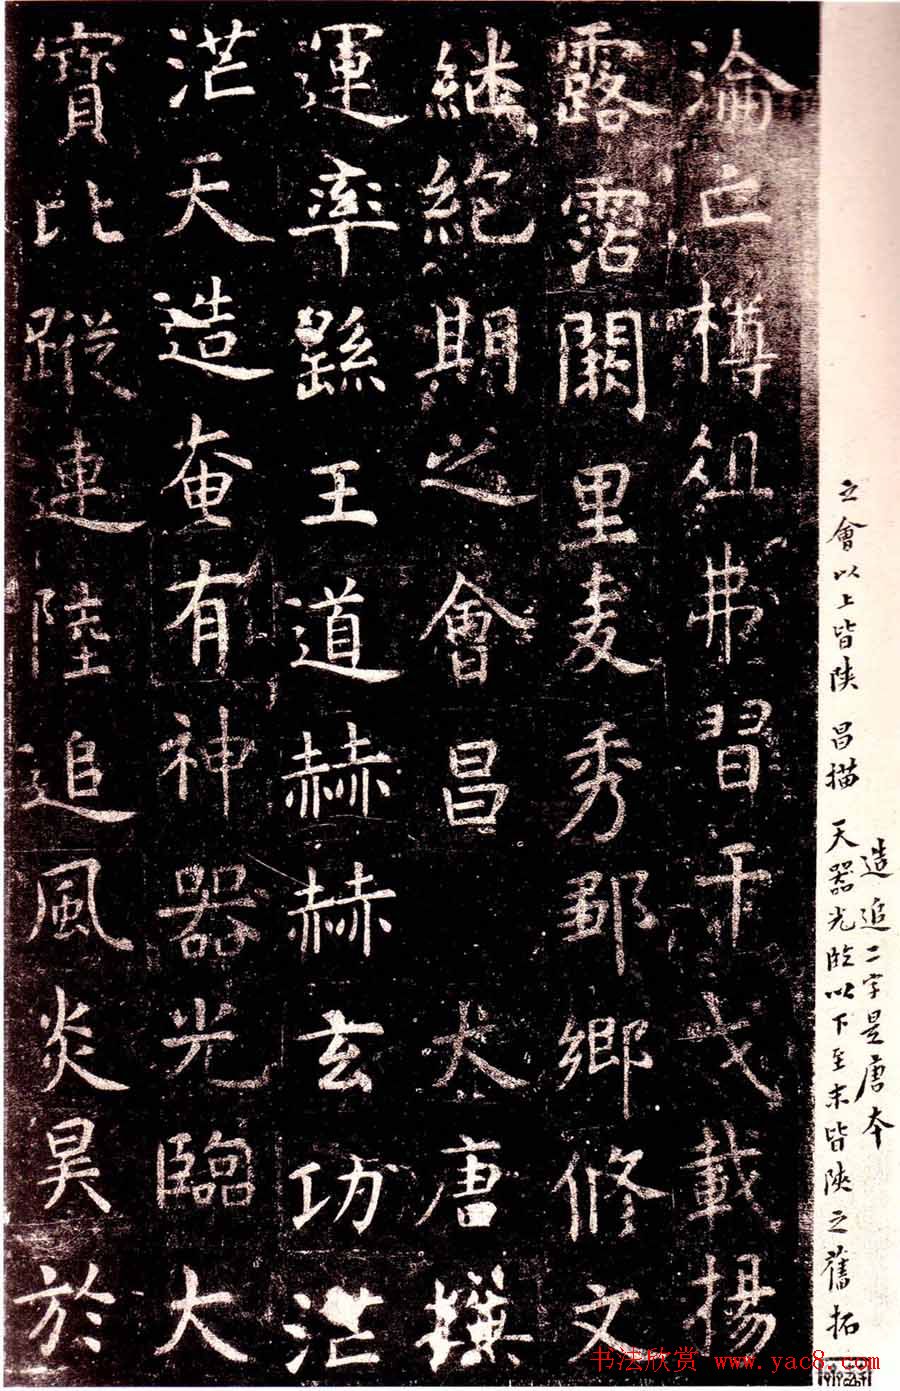 造 追二字是唐本
之會以上皆陕 昌描 天器光臨以下至末皆陕之舊拓
淪亡樽俎弗習干戈載揚
露霑闕里麦秀鄒鄉脩文
継絶期之會昌 大唐撰
運率繇王道赫赫玄功茫
茫天造奄有神器光臨大
寶比蹤連陸追風炎昊於
书法欣赏 www.yac8.com